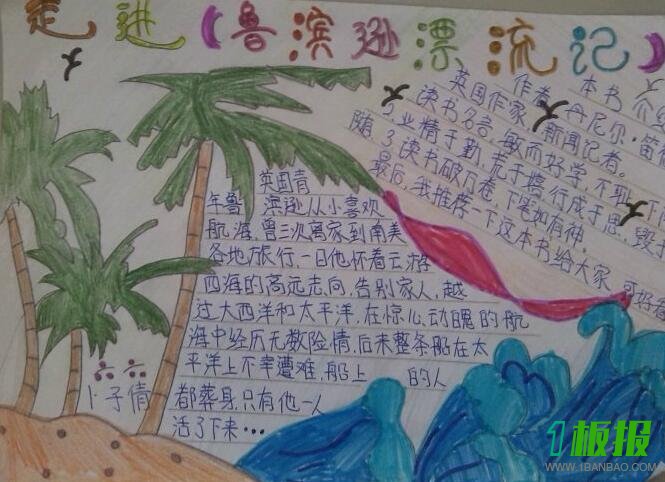 走进《鲁滨逊漂流记》
作者 本书 介绍
英国作家，新闻记者。丹尼尔·笛
读书名言，敏而好学，不耻下
随 2.业精于勤，荒于嬉，行成于思，毁于
3.读书破万卷，下笔如有神。
最后，我推荐一下这本书给大家，可好看
英国青
年鲁 滨逊从小喜欢
航海，曾三次离家到南美
各地旅行，一日他怀着云游
四海的高远志向，告别家人，越
过大西洋和太平洋，在惊心动魄的航
海中经历无数险情，后来整条船在太
平洋上不幸遭难，船上 的人
都葬身，只有他一人
活了下来…
六六
卜子倩
1板报
WWW.1BANBAO.COM